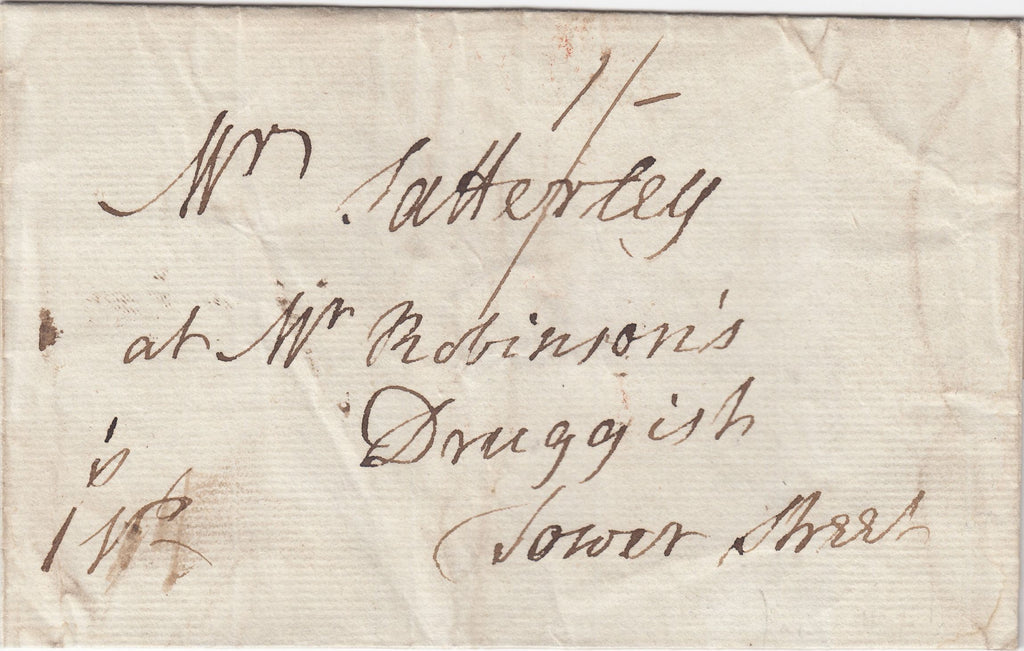 1/-
Mr Satterley
at Mr Robinson's
Druggist
Tower Street